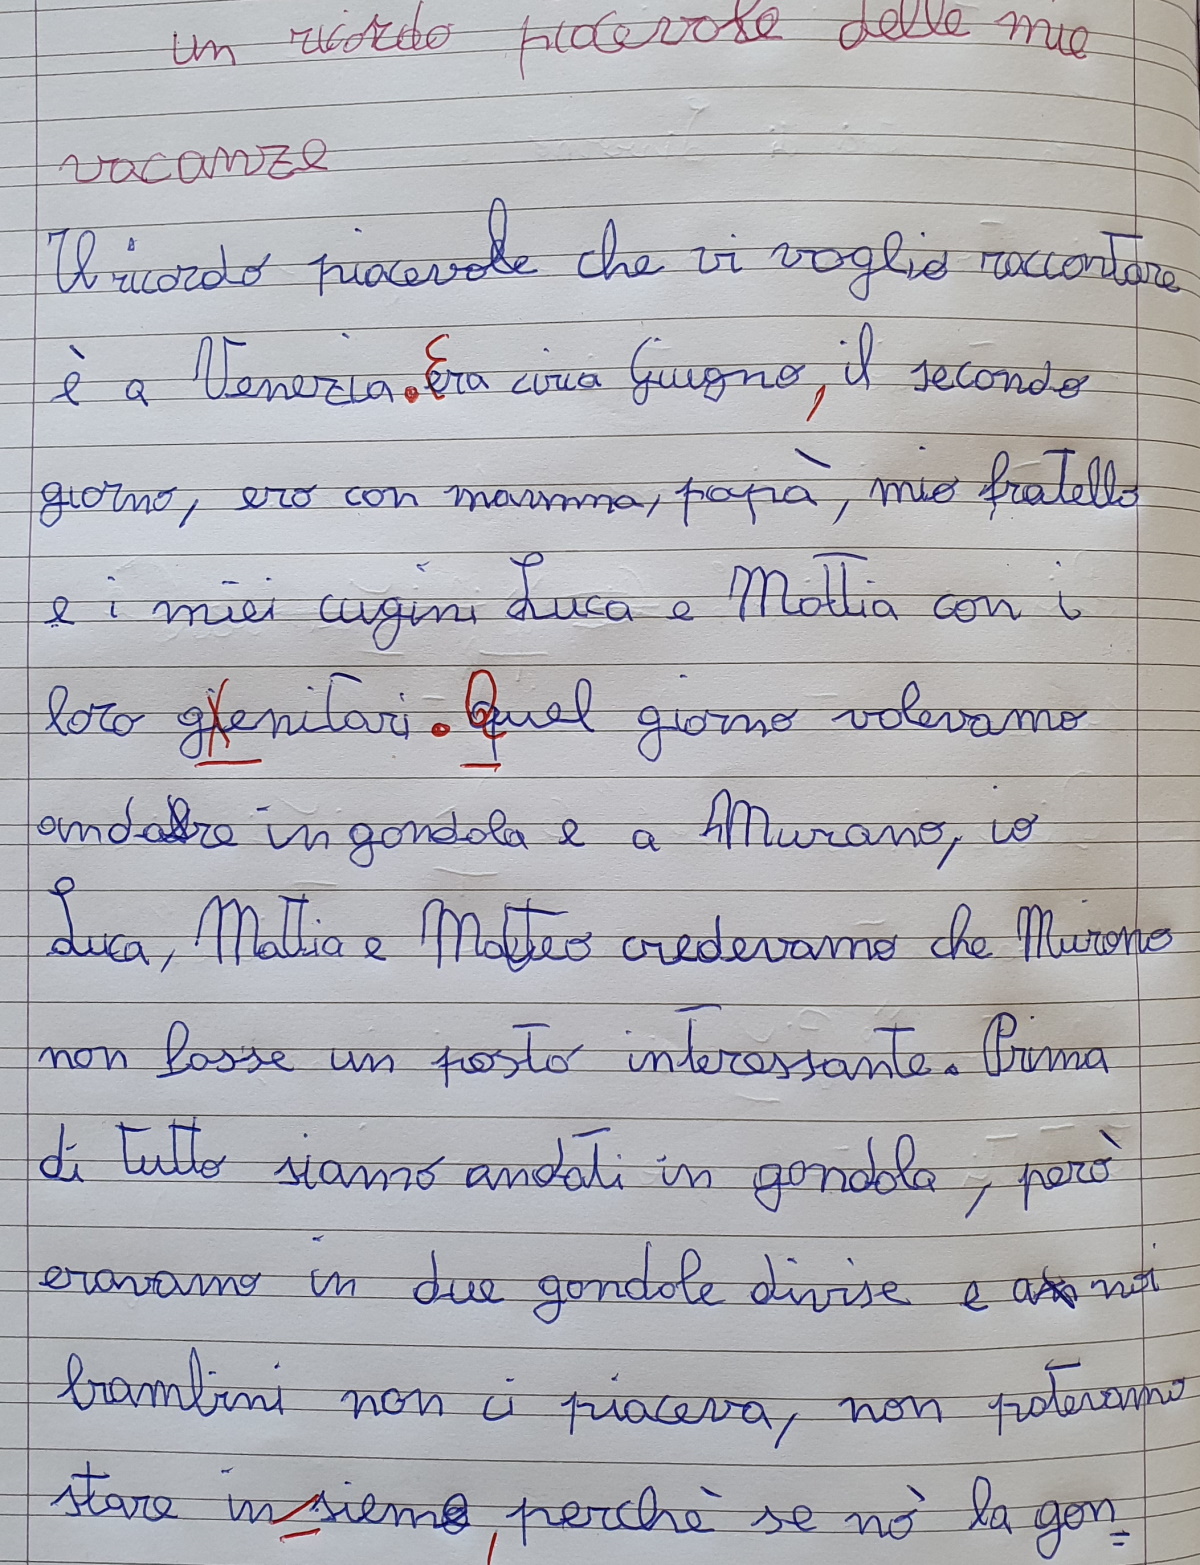 un ricordo piacevole delle mie
vacanze
Il ricordo piacevole che vi voglio raccontare
è a Venezia. Era circa Giugno, il secondo
giorno, ero con mamma, papà, mio fratello
e i miei cugini Luca e Mattia con i
loro genitari. Quel giorno volevamo
andare in gondola e a Murano, io
Luca, Mattia e Matteo credevamo che Murano
non fosse un posto interessante. Prima
di tutto siamo andati in gondola, però
eravamo in due gondole divise e a noi
bambini non ci piaceva, non potevamo
stare insieme, perchè se nò la gon=